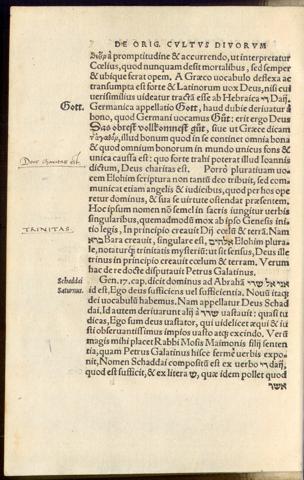 DE ORIG. CVLTVS DIVORVM
à promptitudine & accurrendo, ut interpretatur
Cœlius, quod nunquam desit mortalibus, sed semper
& ubique ferat opem. A Græco uocabulo deflexa ac
transumpta est forte & Latinorum uox Deus, nisi cui
uerisimilius uideatur tractā esse ab Hebraica די Daij.
Gott.
Germanica appellatio Gott, haud dubie deriuatur à
bono, quod Germani uocamus Gůt: erit ergo Deus
Das obrest vollkomnest gůt, siue ut Græce dicam
, illud bonum quod in se continet omnia bona
& quod omnium bonorum in mundo unicus fons &
unica causa est: quo forte trahi poterat illud Ioannis
Deus charitas est.
dictum, Deus charitas est. Porrò pluratiuam uo-
cem Elohim scriptura non tantū deo tribuit, sed com-
municat etiam angelis & iudicibus, quod per hos ope
retur dominus, & sua se uirtute ostendat præsentem.
Hoc ipsum nomen nō semel in sacris iungitur uerbis
singularibus, quemadmodū mox ab ipso Genesis initio
TRINITAS.
legis, In principio creauit Dij cœlū & terrā. Nam
ברא Bara creauit, singulare est, אלהים Elohim plurale,
notaturq; trinitatis mysteriū: ut sit sensus, Deus ille
trinus in principio creauit cœlum & terram. Verum
hac de re docte disputauit Petrus Galatinus.
Schaddai
Saturnus.
Gen. 17. cap. dicit dominus ad Abrahā אני אל שדי
id est, Ego deus sufficiens uel sufficientia. Nouū itaq;
dei uocabulū habemus. Nam appellatur Deus Schad
dai, Id autem deriuarunt alij à שדד uastauit: quasi tu
dicas, Ego sum deus uastator, qui uidelicet æqui & iu
sti obseruantissimus impios uasto atq; excindo. Verū
magis mihi placet Rabbi Mosis Maimonis filij senten
tia, quam Petrus Galatinus hisce fermè uerbis expo-
nit, Nomen Schaddai compositū est ex uerbo די daij,
quod est sufficit, & ex litera ש, quæ idem pollet quod
אשר